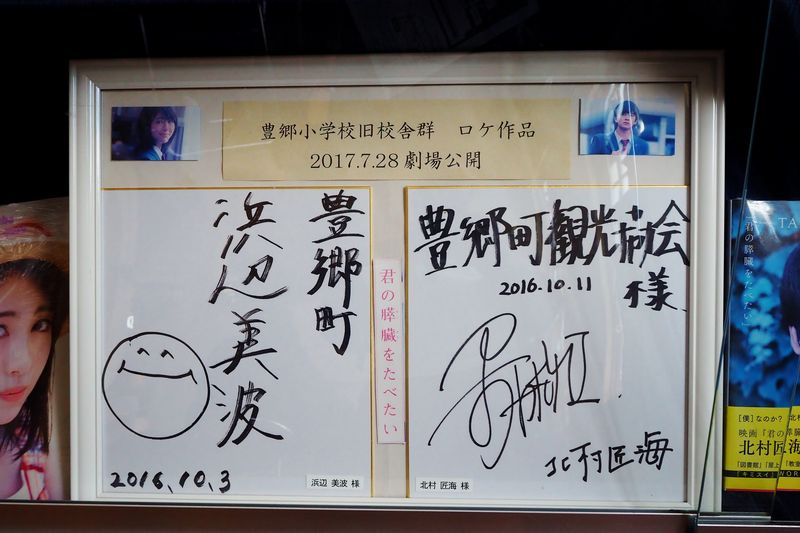 豊郷小学校旧校舎群 ロケ作品
2017.7.28 劇場公開
豊郷町
浜辺美波
2016.10.3
浜辺 美波 様
君の膵臓をたべたい
豊郷町観光協会
様
2016.10.11
北村匠海
北村 匠海 様
TA
「君の膵臓をたべたい」
[僕]なのか? 北村
映画『君の膵
北村匠海
「図書館」「屋上」「教室
[キミスイ] WOR